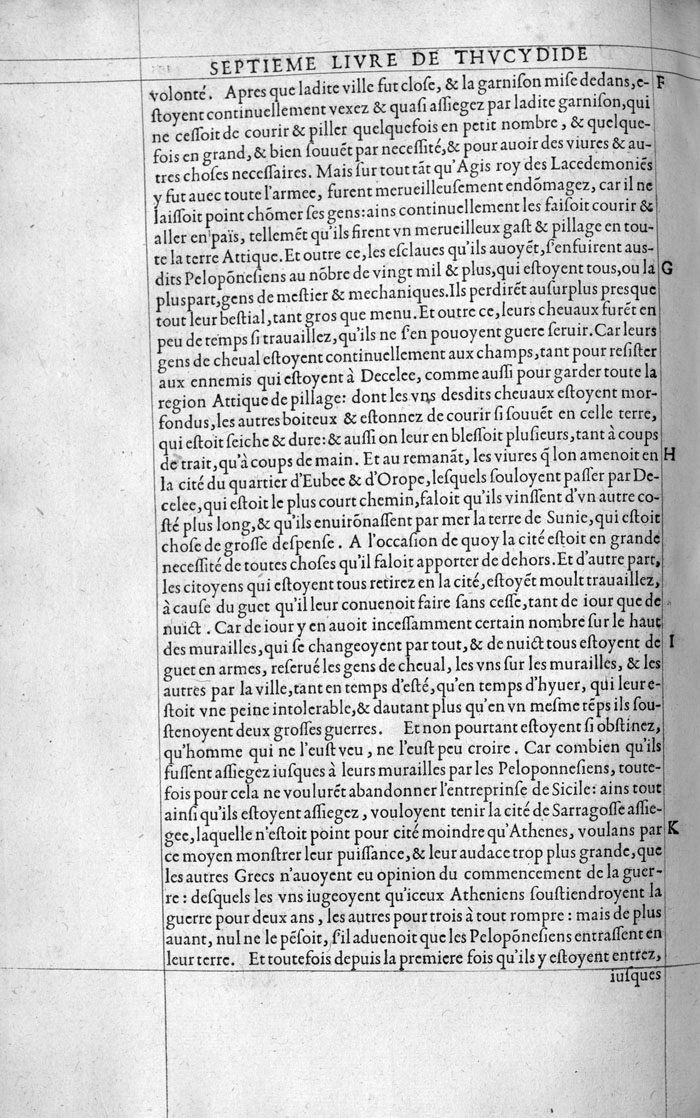 SEPTIEME LIVRE DE THVCYDIDE
volonté. Apres que ladite ville fut close, & la garnison mise dedans, e- F
ſtoyent continuellement vexez & quaſi aſsiegez par ladite garniſon, qui
ne ceſſoit de courir & piller quelquefois en petit nombre, & quelque-
fois en grand, & bien ſouuẽt par neceſsité, & pour auoir des viures & au-
tres choſes neceſſaires. Mais ſur tout tãt qu'Agis roy des Lacedemoniẽs
y fut auec toute l'armee, furent merueilleuſement endõmagez, car il ne
laiſſoit point chõmer ſes gens: ains continuellement les faiſoit courir &
aller en païs, tellemẽt qu'ils firent vn merueilleux gaſt & pillage en tou-
te la terre Attique. Et outre ce, les eſclaues qu'ils auoyẽt, ſ'enfuirent auſ-
dits Pelopõneſiens au nõbre de vingt mil & plus, qui eſtoyent tous, ou la G
pluspart, gens de meſtier & mechaniques. Ils perdirẽt auſurplus preſque
tout leur beſtial, tant gros que menu. Et outre ce, leurs cheuaux furẽt en
peu de temps ſi trauaillez, qu'ils ne ſ'en pouoyent guere ſeruir. Car leurs
gens de cheual eſtoyent continuellement aux champs, tant pour reſiſter
aux ennemis qui eſtoyent à Decelee, comme auſsi pour garder toute la
region Attique de pillage: dont les vns desdits cheuaux eſtoyent mor-
fondus, les autres boiteux & eſtonnez de courir ſi ſouuẽt en celle terre,
qui eſtoit ſeiche & dure: & auſsi on leur en bleſſoit pluſieurs, tant à coups
de trait, qu'à coups de main. Et au remanãt, les viures q̃ lon amenoit en H
la cité du quartier d'Eubee & d'Orope, leſquels ſouloyent paſſer par De-
celee, qui eſtoit le plus court chemin, faloit qu'ils vinſſent d'vn autre co-
ſté plus long, & qu'ils enuirõnaſſent par mer la terre de Sunie, qui eſtoit
choſe de groſſe deſpenſe. A l'occaſion de quoy la cité eſtoit en grande
neceſsité de toutes choſes qu'il faloit apporter de dehors. Et d'autre part,
les citoyens qui eſtoyent tous retirez en la cité, eſtoyẽt moult trauaillez,
à cauſe du guet qu'il leur conuenoit faire ſans ceſſe, tant de iour que de
nuict. Car de iour y en auoit inceſſamment certain nombre ſur le haut
des murailles, qui ſe changeoyent par tout, & de nuict tous eſtoyent de I
guet en armes, reſerué les gens de cheual, les vns ſur les murailles, & les
autres par la ville, tant en temps d'eſté, qu'en temps d'hyuer, qui leur e-
ſtoit vne peine intolerable, & dautant plus qu'en vn meſme tẽps ils ſou-
ſtenoyent deux groſſes guerres. Et non pourtant eſtoyent ſi obſtinez,
qu'homme qui ne l'euſt veu, ne l'euſt peu croire. Car combien qu'ils
fuſſent aſsiegez iuſques à leurs murailles par les Peloponneſiens, toute-
fois pour cela ne voulurẽt abandonner l'entreprinſe de Sicile: ains tout
ainſi qu'ils eſtoyent aſsiegez, vouloyent tenir la cité de Sarragoſſe aſsie-
gee, laquelle n'eſtoit point pour cité moindre qu'Athenes, voulans par K
ce moyen monſtrer leur puiſſance, & leur audace trop plus grande, que
les autres Grecs n'auoyent eu opinion du commencement de la guer-
re: deſquels les vns iugeoyent qu'iceux Atheniens ſouſtiendroyent la
guerre pour deux ans, les autres pour trois à tout rompre: mais de plus
auant, nul ne le pẽſoit, ſ'il aduenoit que les Pelopõneſiens entraſſent en
leur terre. Et toutefois depuis la premiere fois qu'ils y eſtoyent entrez,
iuſques